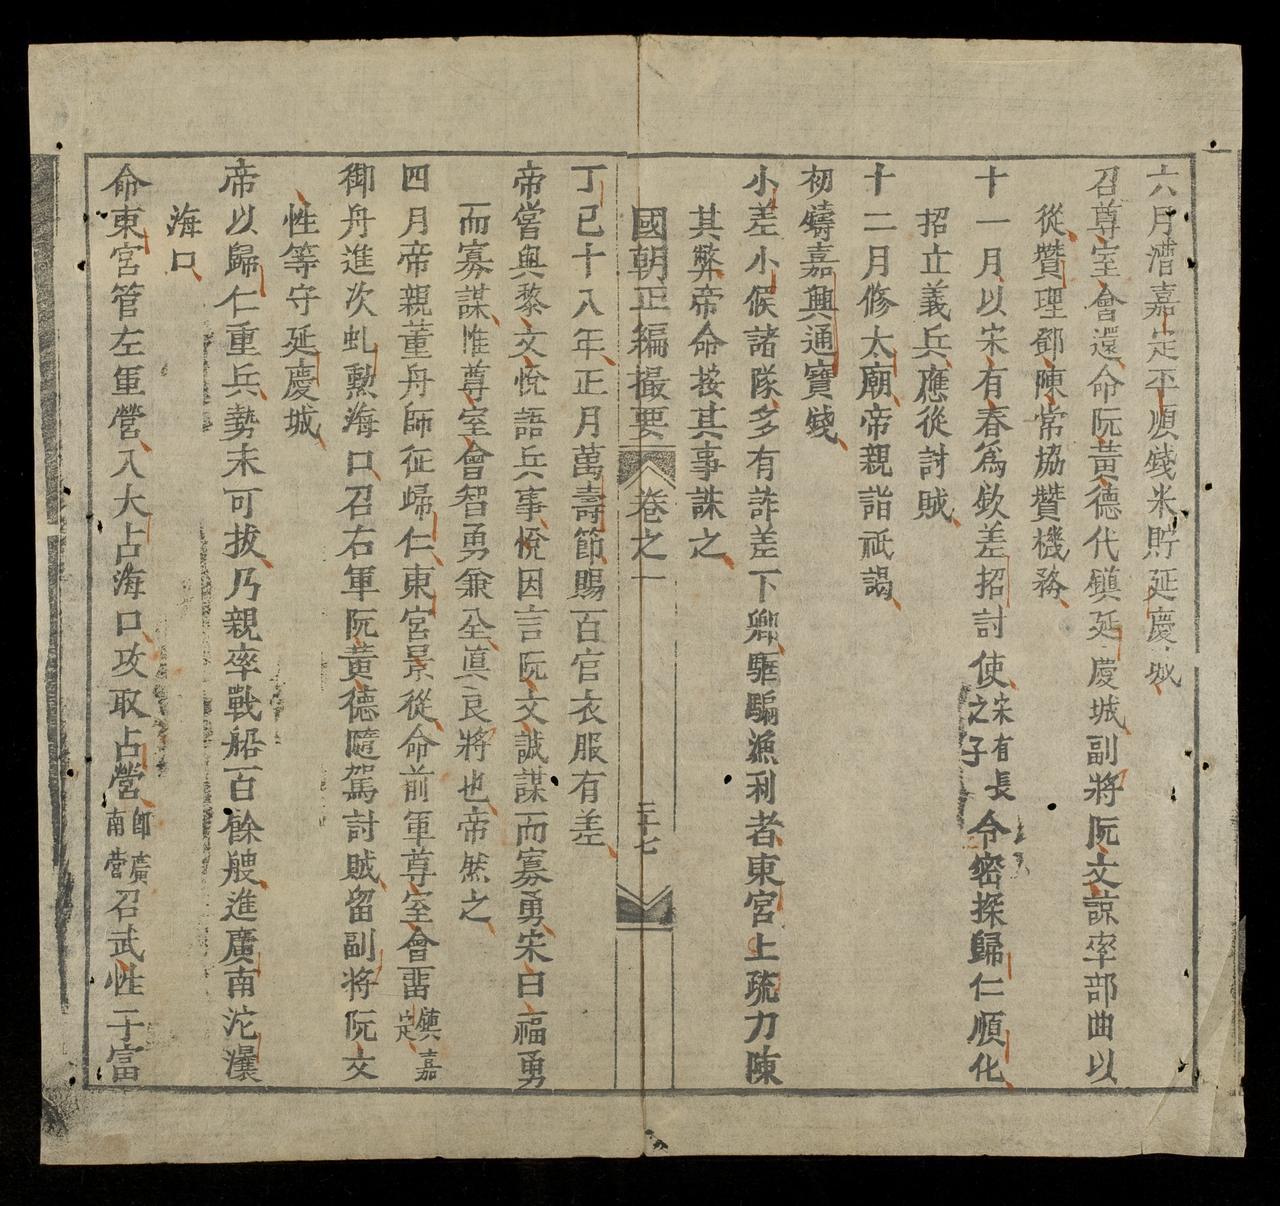 六月漕嘉定平順錢米貯延慶城
召尊室會還命阮黃德代鎮延慶城副將阮文諒率部曲以
從贊理鄧陳常協贊機務
十一月以宋有春爲欽差招討使宋有長之子令密探歸仁順化
招立義兵應從討賊
十二月修太廟帝親詣祗謁
初鑄嘉興通寶錢
小差小候諸隊多有詐差下鄉驅騙漁利者東宮上疏力陳
其弊帝命按其事誅之
國朝正編撮要 卷之一 三七
丁巳十八年正月萬壽節賜百官衣服有差
帝嘗與黎文悅語兵事悅因言阮文誠謀而寡勇宋曰福勇
而寡謀惟尊室會智勇兼全眞良將也帝然之
四月帝親董舟師征歸仁東宮景從命前軍尊室會畱鎮嘉定
御舟進次虬勲海口召右軍阮黃德隨駕討賊留副將阮文
性等守延慶城
帝以歸仁重兵勢未可拔乃親率戰船百餘艘進廣南沱㶞
海口
命東宮管左軍營入大占海口攻取占營卽廣南營召武性于富